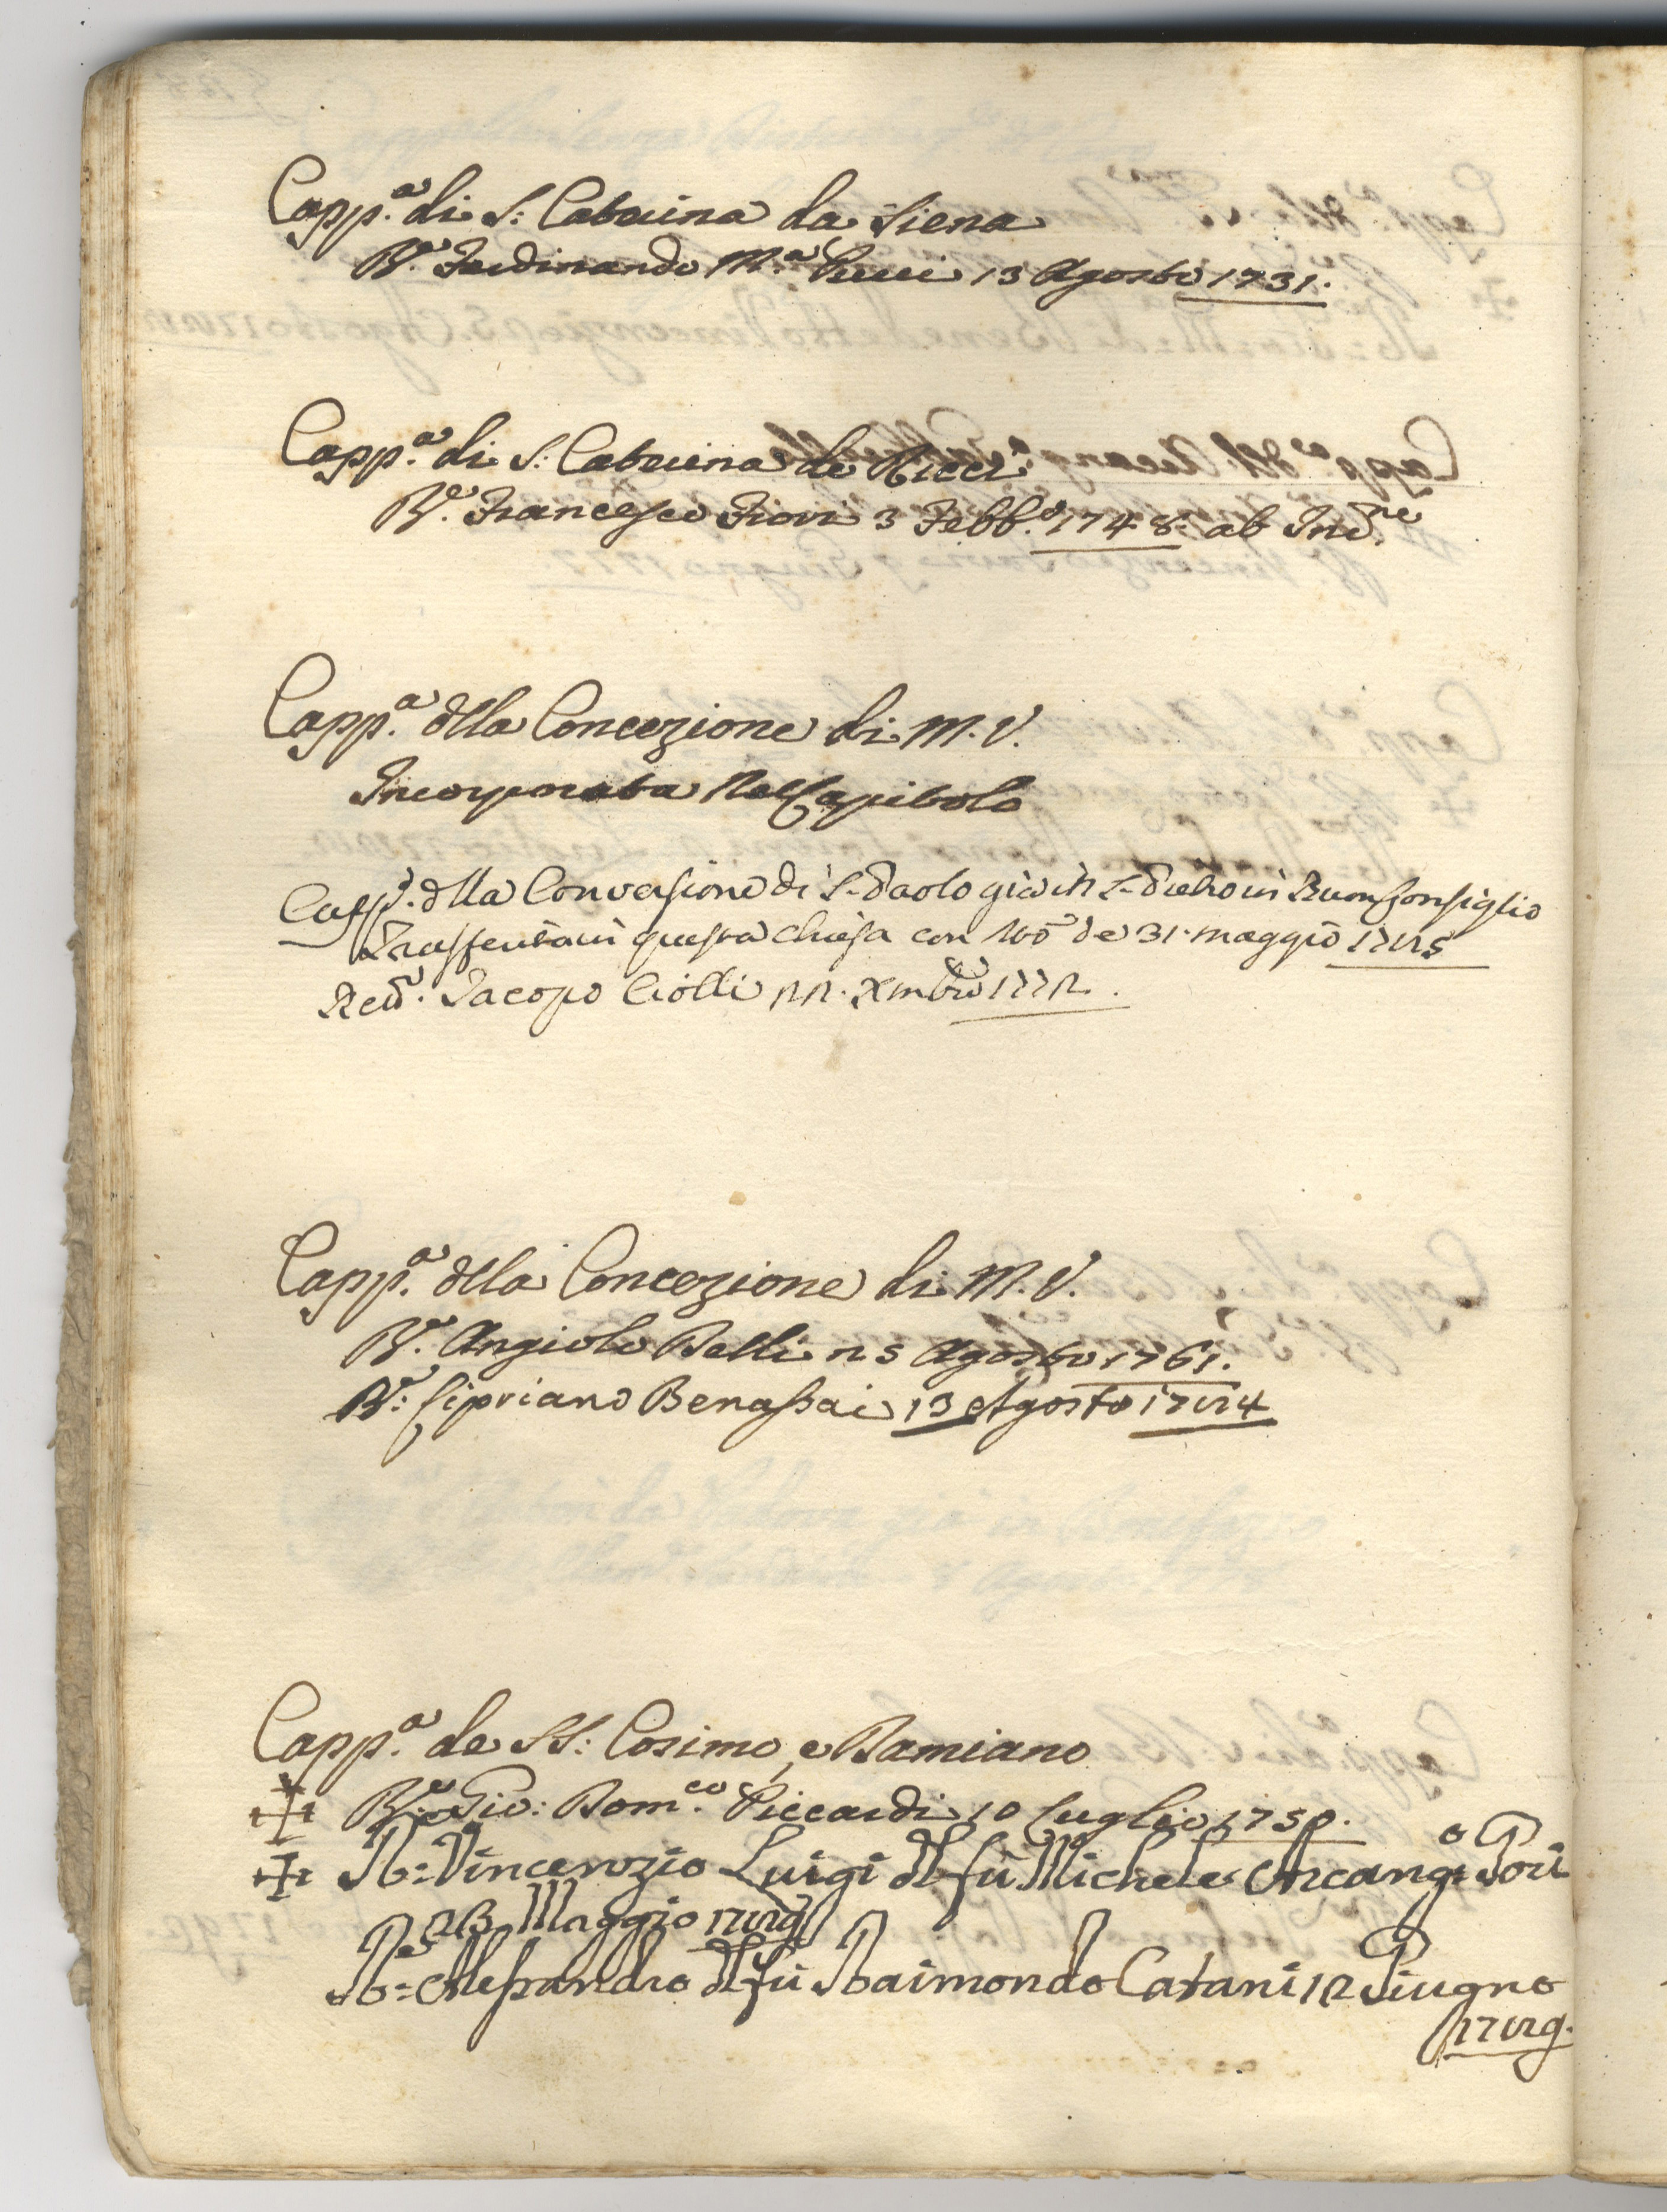 Capp.a di S: Caterina da Siena
R.e Ferdinando M.a Pucci 13 Agosto 1731.
Capp.a di S: Caterina de Ricci
R.e Francesco Fiovi 3 Febb.o 1748. ab Inc.ne
Capp.a della Concezione di M.V.
Incorporata Nel Capitolo
Capp.a della Conversione di S. Paolo già in S. Pietro in Buonconsiglio
Trasferita in questa chiesa con de 31. maggio 1785
Jacopo Ciolli 22. Xmbre 1772.
Capp.a della Concezione di M.V.
R.e Angiolo Belli 25 Agosto 1761.
R.e: Cipriano Benassai 13 Agosto 1784
Capp.a de SS: Cosimo, e Damiano
R.e Gio: Dom.co Piccardi 10 Luglio 1759.
R.e: Vincenzio Luigi del fù Michele Arcang.o Pori
23 Maggio 1789
R.e: Alessandro del fù Raimondo Catani 12 Giugno
1789.